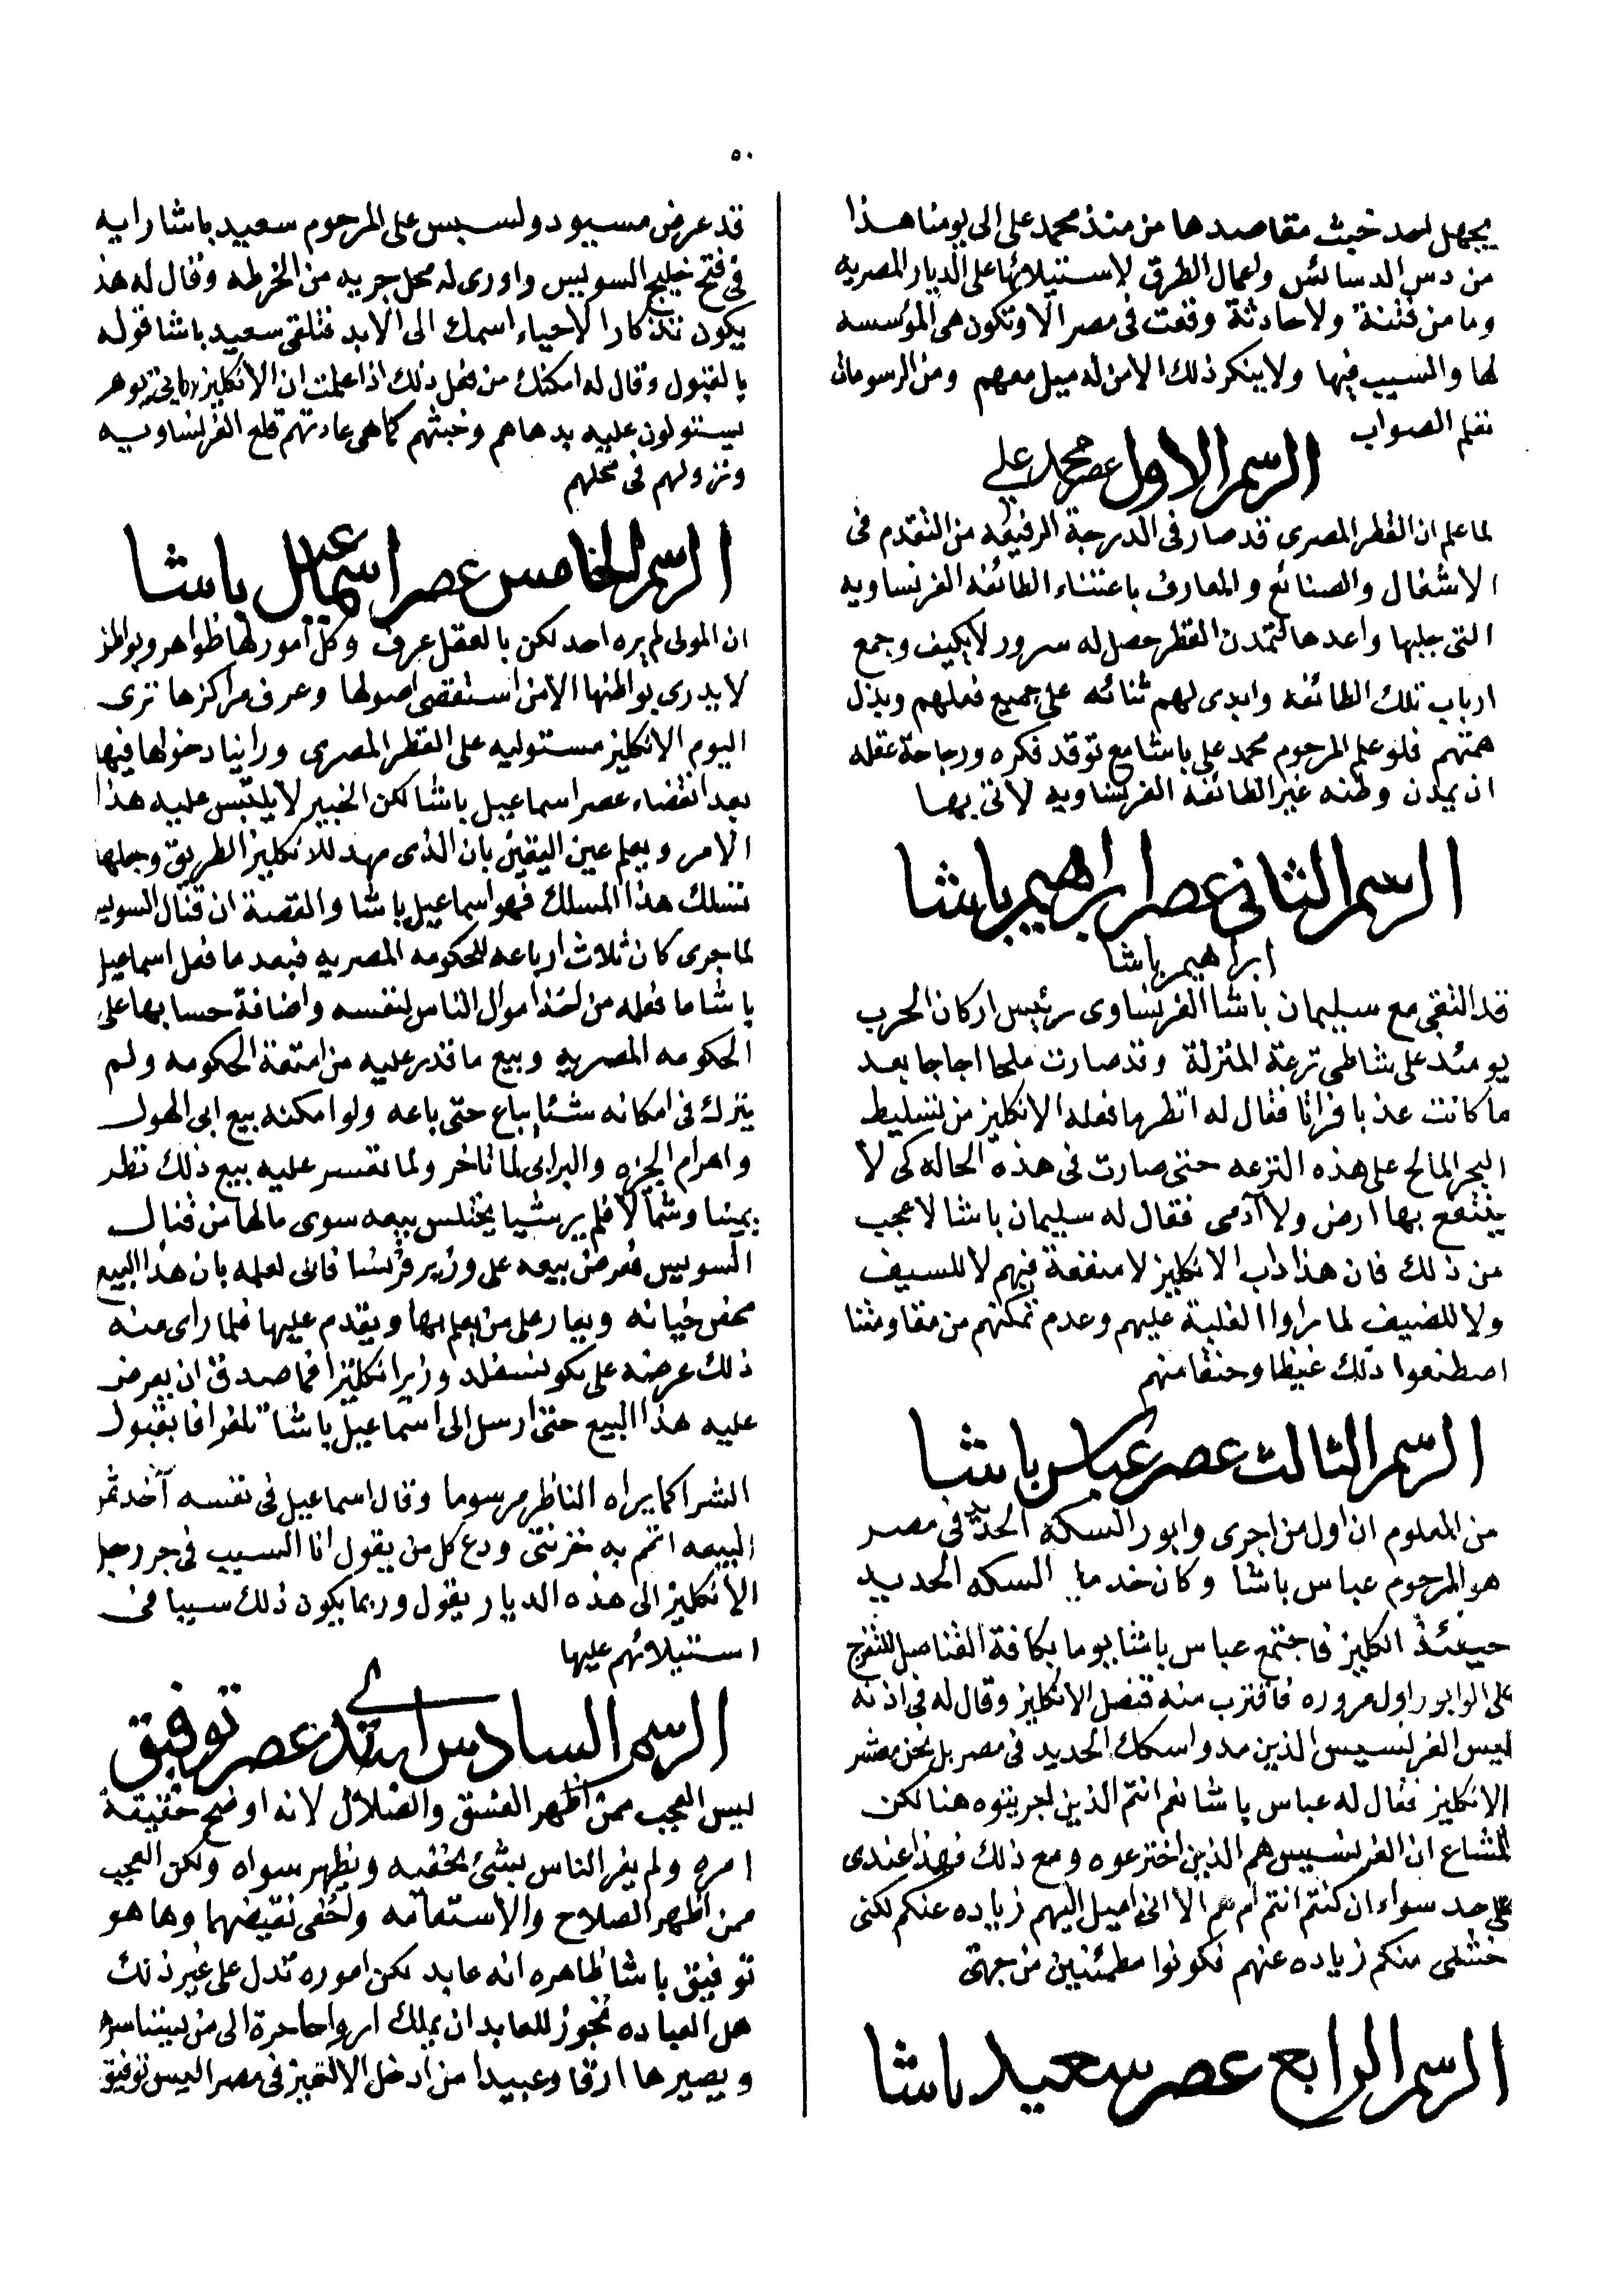 ٥٠
يجهل احد خبث مقاصدها من منذ محمد على الى يومنا هذا
من دس الدسائس واعمال الطرق لاستيلائها على الديار المصريه
وما من فتنة ولا حادثة وقعت فى مصر الا وتكون هى المؤسسه
لها والمسبب فيها ولا ينكر ذلك الا من له ميل معهم ومن الرسومات
تعلم الصواب
الرسم الاول عصر محمد على
لما علم ان القطر المصرى قد صار فى الدرجة الرفيعه من التقدم فى
الاشغال والصنائع والمعارف باعتناء الطائفه الفرنساويه
التى جلبها واعدها لتمدن القطر حصل له سرور لا يكيف وجمع
ارباب تلك الطائفه وابدى لهم ثنائه على جميع فعلهم وبذل
همتهم فلو علم المرحوم محمد على باشا مع توقد فكره ورجاحة عقله
ان يمدن وطنه غير الطائفه الفرنساويه لاتى بها
الرسم الثانى عصر ابراهيم باشا
ابراهيم باشا
قد التقى مع سليمان باشا الفرنساوى رئيس اركان الحرب
يومئد على شاطى ترعة المنزلة وقد صارت ملحا اجاجا بعد
ما كانت عذبا فراتا فقال له انظر ما فعله الانكليز من تسليط
البحر المالح على هذه الترعه حتى صارت فى هذه الحاله كى لا
ينتفع بها ارض ولا آدمى فقال له سليمان باشا لا عجب
من ذلك فان هذا داب الانكليز لا منفعة فيهم لا للسيف
ولا للضيف لما راوا الغلبة عليهم وعدم تمكنهم من مقاومتنا
اصطنعوا ذلك غيظا وحنقا منهم
الرسم الثالث عصر عباس باشا
من المعلوم ان اول من اجرى وابور السكه الحديد فى مصر
هو المرحوم عباس باشا وكان خدما السكه الحديد
حينئذ انكليز فاجتمع عباس باشا يوما بكافة القناصل للتفرج
على الوابور اول مروره فاقترب منه قنصل الانكليز وقال له فى اذنه
ليس الفرنسيس الذين مدوا سكك الحديد فى مصر بل نحن معشر
الانكليز فقال له عباس باشا نعم انتم الذين اجريتوه هنا لكن
المشاع ان الفرنسيس هم الذين اخترعوه ومع ذلك فهذا عندى
على حد سواء ان كنتم انتم ام هم الا انى اميل اليهم زياده عنكم لكنى
خشى منكم زياده عنهم فكونوا مطمئنين من جهتى
الرسم الرابع عصر سعيد باشا
قد عرض مسيو دولسبس على المرحوم سعيد باشا رايه
فى فتح خليج السويس واورى له محل جريه من الخرطه وقال له هذا
يكون تذكارا لاحياء اسمك الى الابد فتلقى سعيد باشا قوله
بالقبول وقال له امكنك من فعل ذلك اذا علمت ان الانكليز
يستولون عليه بدهاهم وخبثهم كما هى عادتهم قلع الفرنساويه
ونزولهم فى محلهم
الرسم الخامس عصر اسماعيل باشا
ان المولى لم يره احد لكن بالعقل عرف وكل امور لها ظواهر وبواطن
لا يدرى بواطنها الا من استقصى اصولها وعرف مراكزها ترى
اليوم الانكليز مستوليه على القطر المصرى وراينا دخولها فيها
بعد انقضاء عصر اسماعيل باشا لكن الخبير لا يلتبس عليه هذا
الامر ويعلم عين اليقين بان الذى مهد للانكليز الطريق وجعلها
تسلك هذا المسلك فهو اسماعيل باشا والقصة ان قنال السويس
لما جرى كان ثلاث ارباعه للحكومه المصريه فبعد ما فعل اسماعيل
باشا ما فعله من اخذ اموال الناس لنفسه واضافة حسابها على
الحكومه المصريه وبيع ما قدر عليه من امتعة الحكومه ولم
يترك فى امكانه شئا يباع حتى باعه ولو امكنه بيع ابى الهول
واهرام الجزه والبرابى لما تاخر ولما تعسر عليه بيع ذلك نظر
يمينا وشمالا فلم ير شيا يختلس بيعه سوى مالها من قنال
السويس فعرض بيعه على وزير فرنسا فابى لعلمه بان هذا البيع
محض خيانه وبعار على من يعلم بها ويقدم عليها فلما راى منه
ذلك عرضه على بكونسفلد وزير انكليزا فما صدق ان يعرض
عليه هذا البيع حتى ارسل الى اسماعيل باشا تلغرافا بقبول
الشرا كما يراه الناظر مرسوما وقال اسماعيل فى نفسه آخد ثمن
البيعه اتمم به خزنتى ودع كل من يقول انا السبب فى جر رجل
الانكليز الى هذه الديار يقول وربما يكون ذلك سببا فى
استيلائهم عليها
الرسم السادس ابتداء عصر توفيق
ليس العجب ممن اظهر الفسق والضلال لانه اوضح حقيقة
امره ولم يغر الناس بشئ يخفيه ويظهر سواه ولكن العجب
ممن اظهر الصلاح والاستقامه واخفى نقيضهما وها هو
توفيق باشا ظاهره انه عابد لكن اموره تدل على غير ذلك
هل العباده تجوز للعابد ان يملك ارواحا حرة الى من يبتاسره
ويصيرها ارقا وعبيدا من ادخل الانقليز فى مصر اليس توفيق